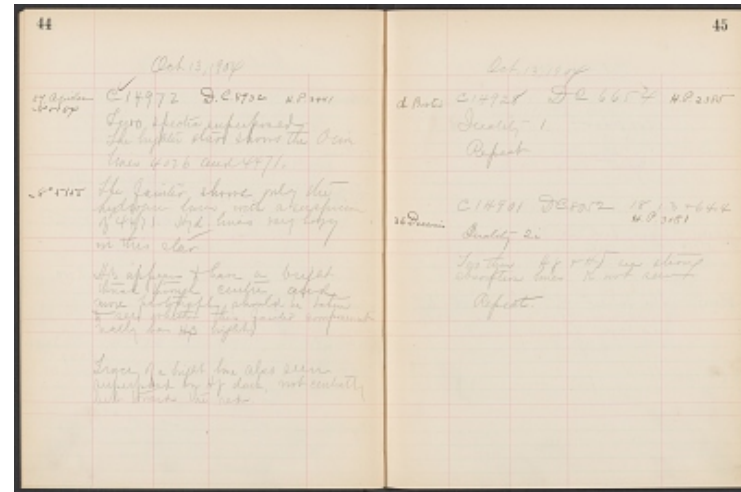 44
Oct. 13, 1904
C 14972 D.C 8932 H.P. 3441
Two spectra superposed
The brighter star shows the Orion
lines 4026 and 4471.
The fainter shows only the
hydrogen lines with a suspicion
of 4471. Hyd. lines very hazy
in this star
appears to have a bright
band through centre and
more photographs should be taken
to see whether this fainter component
really has Hβ bright
Trace of a bright line also seen
superposed by dark, not centrally
but towards the red.
45
Oct. 13, 1904
d Bootis C 14928 D C 6654 H.P. 2385
Quality 1
Repeat
C 14901 D C 8012 18 13 +64.4
H.P. 3081
36 Draconis
Quality 2
strong
absorption lines K not seen
Repeat.